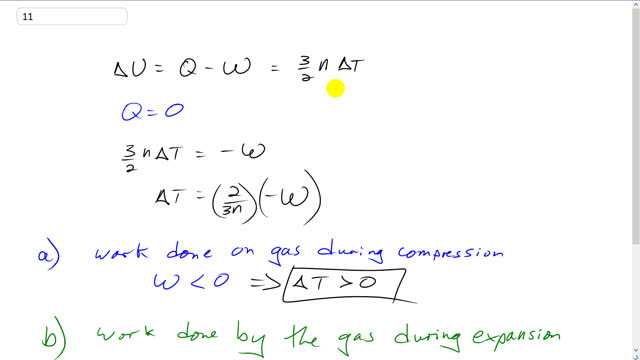 11
ΔU = Q - W = 3/2 n ΔT
Q = 0
3/2 n ΔT = - W
ΔT = (2/3n)(-W)
a) work done on gas during compression
W < 0 => ΔT > 0
b) work done by the gas during expansion